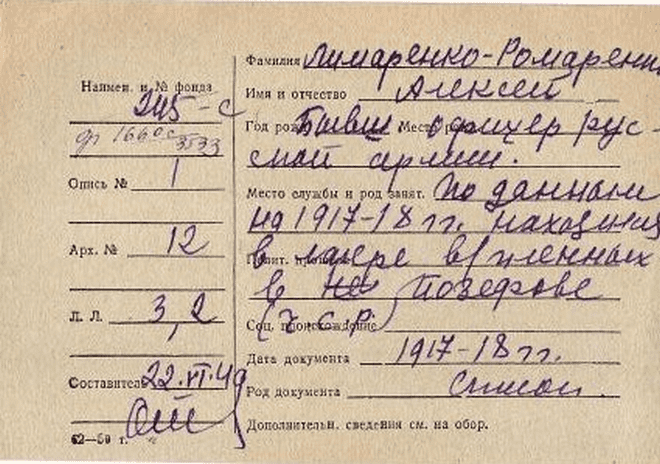 Наимен. и № фонда
245-с
Опись № 1
Арх. № 12
Л. Л. 3, 2
Составитель 22.VI.49
62—50 г.
Фамилия Лимаренко-Ромарени
Имя и отчество Алексей
Год рожд. Бывш Место офицер рус-
ской армии.
Место службы и род занят. По данным
на 1917-18 гг. находился
в лагере в/пленных
в Позерове
(Ч.С.Р)
Соц. происхождение
Дата документа 1917-18 гг.
Род документа список.
Дополнительн. сведения см. на обор.